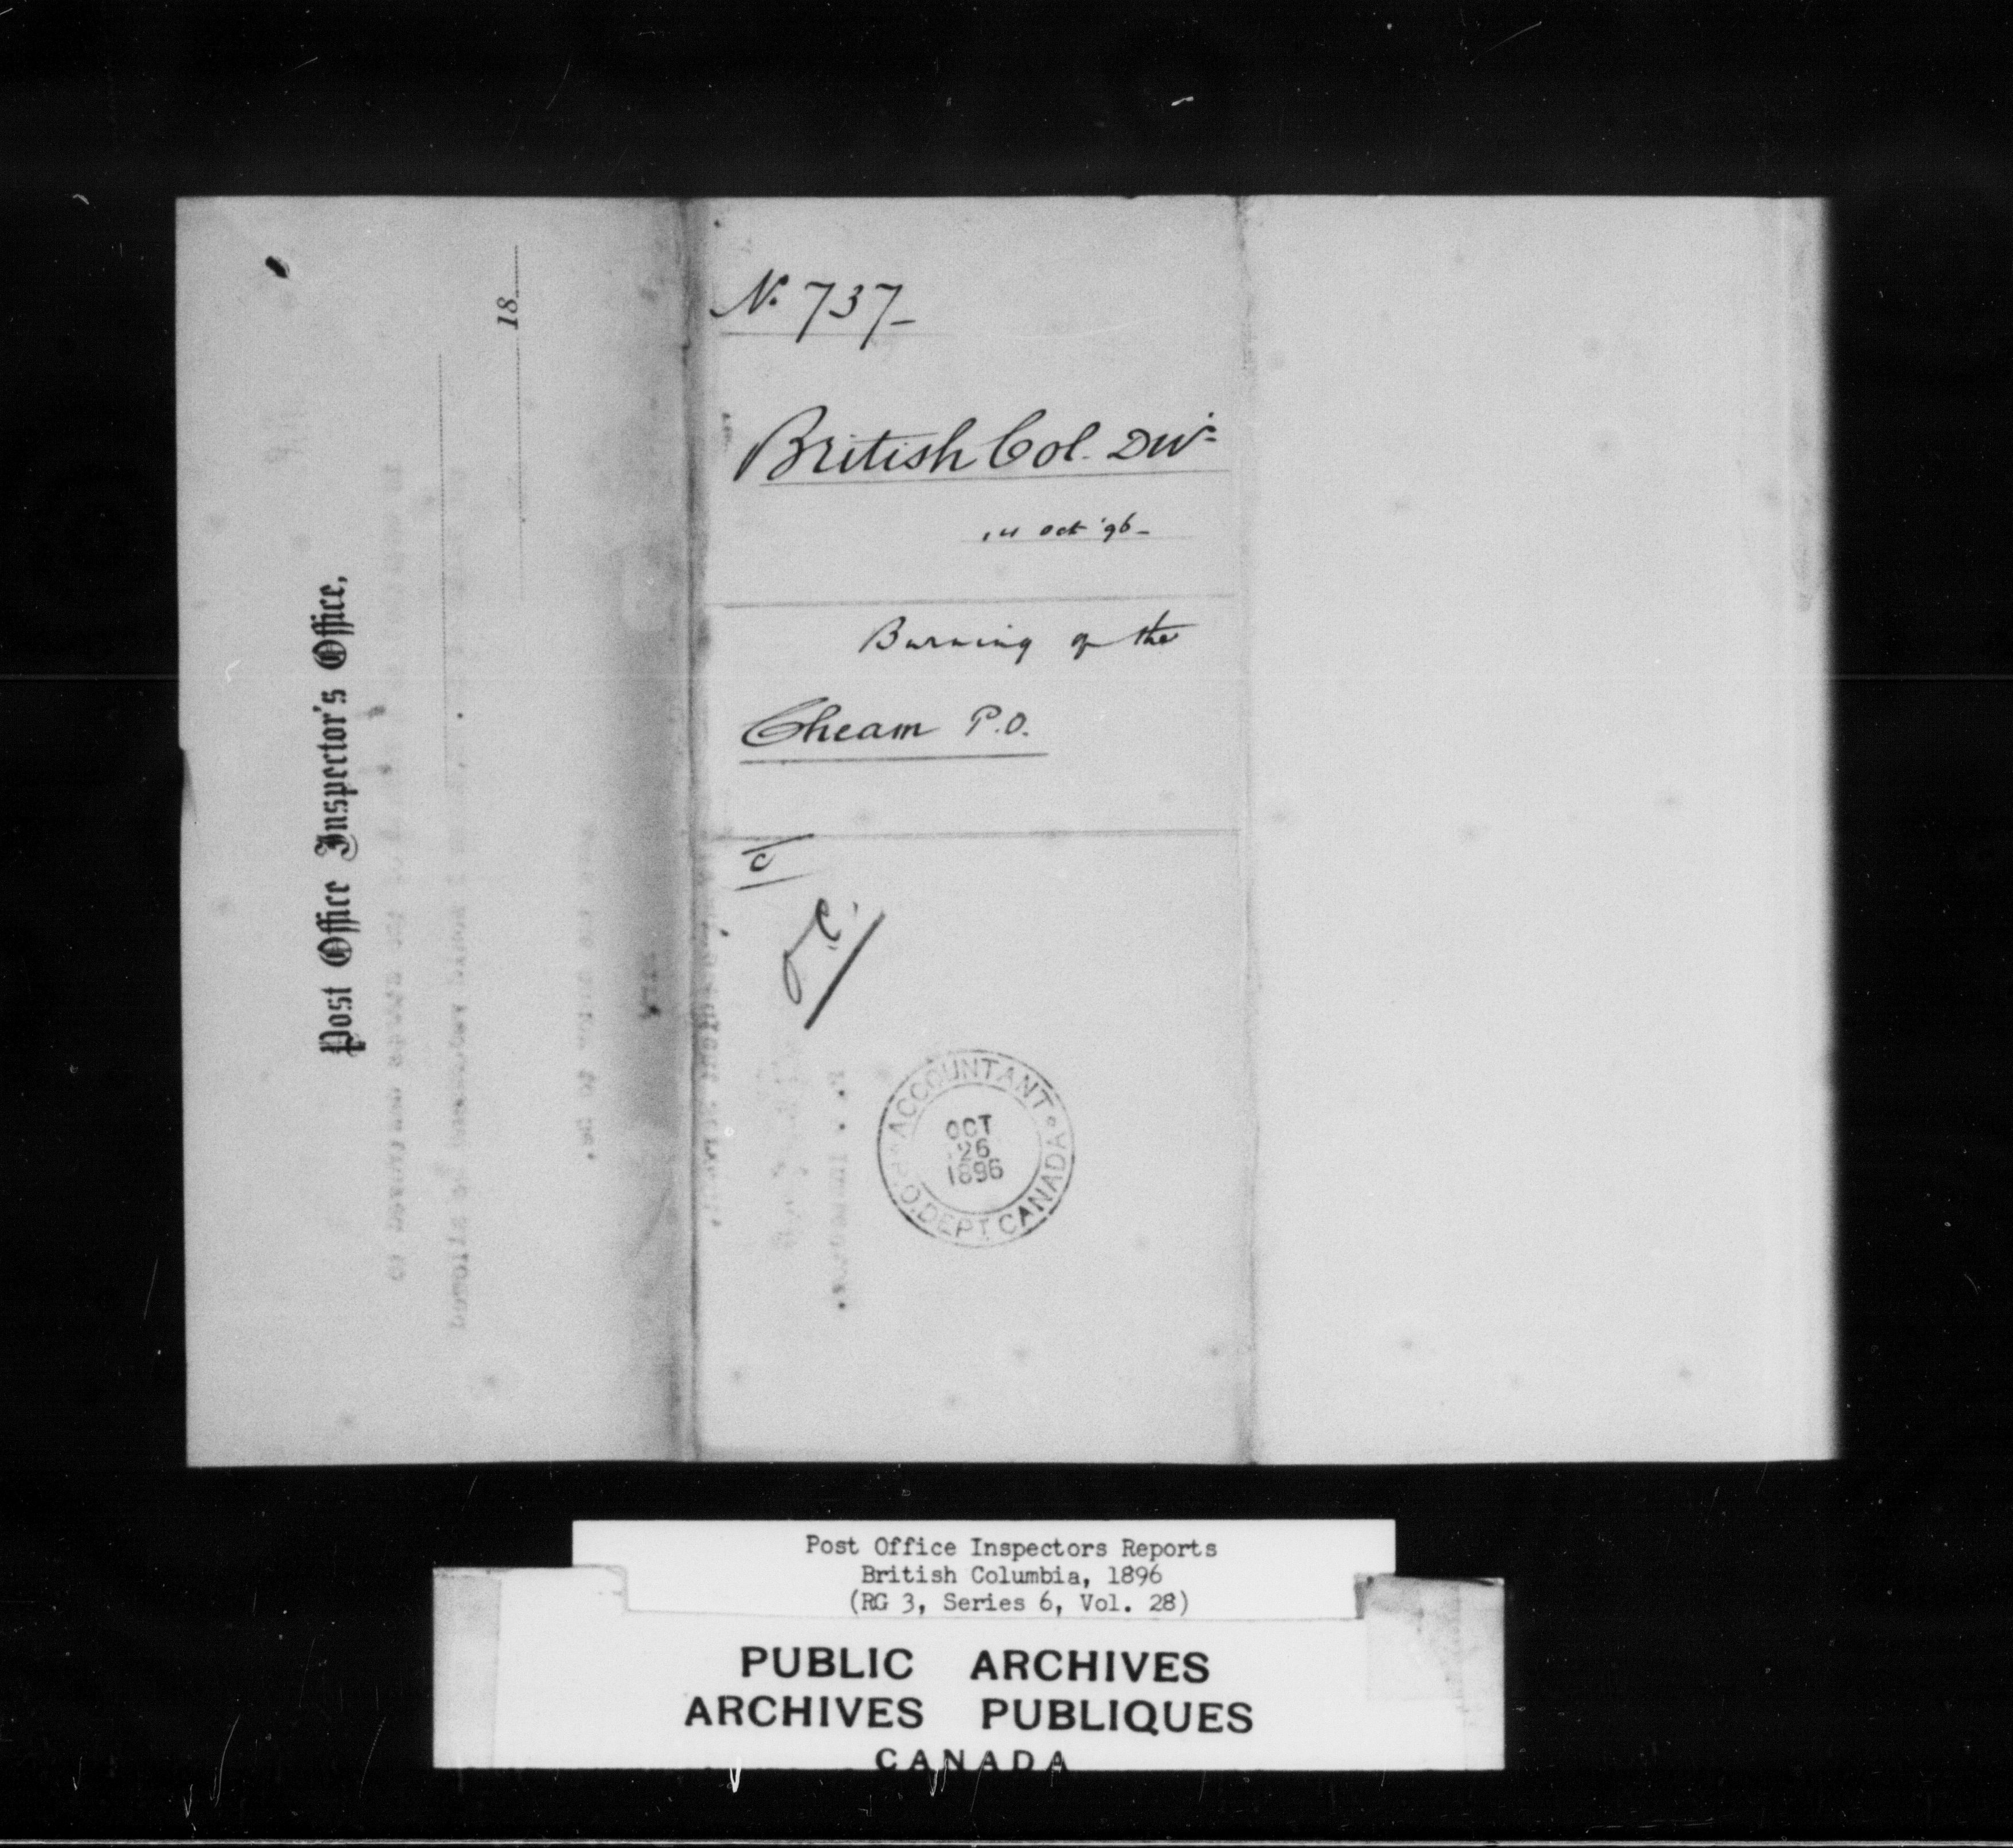 Post Office Inspector's Office,
18
No. 737
British Col. Divn
Oct '96
Burning of the
Cheam P.O.
C
ACCOUNTANT
P.O. DEPT. CANADA
OCT
26
1896
Post Office Inspectors Reports
British Columbia, 1896
(RG 3, Series 6, Vol. 28)
PUBLIC ARCHIVES
ARCHIVES PUBLIQUES
CANADA